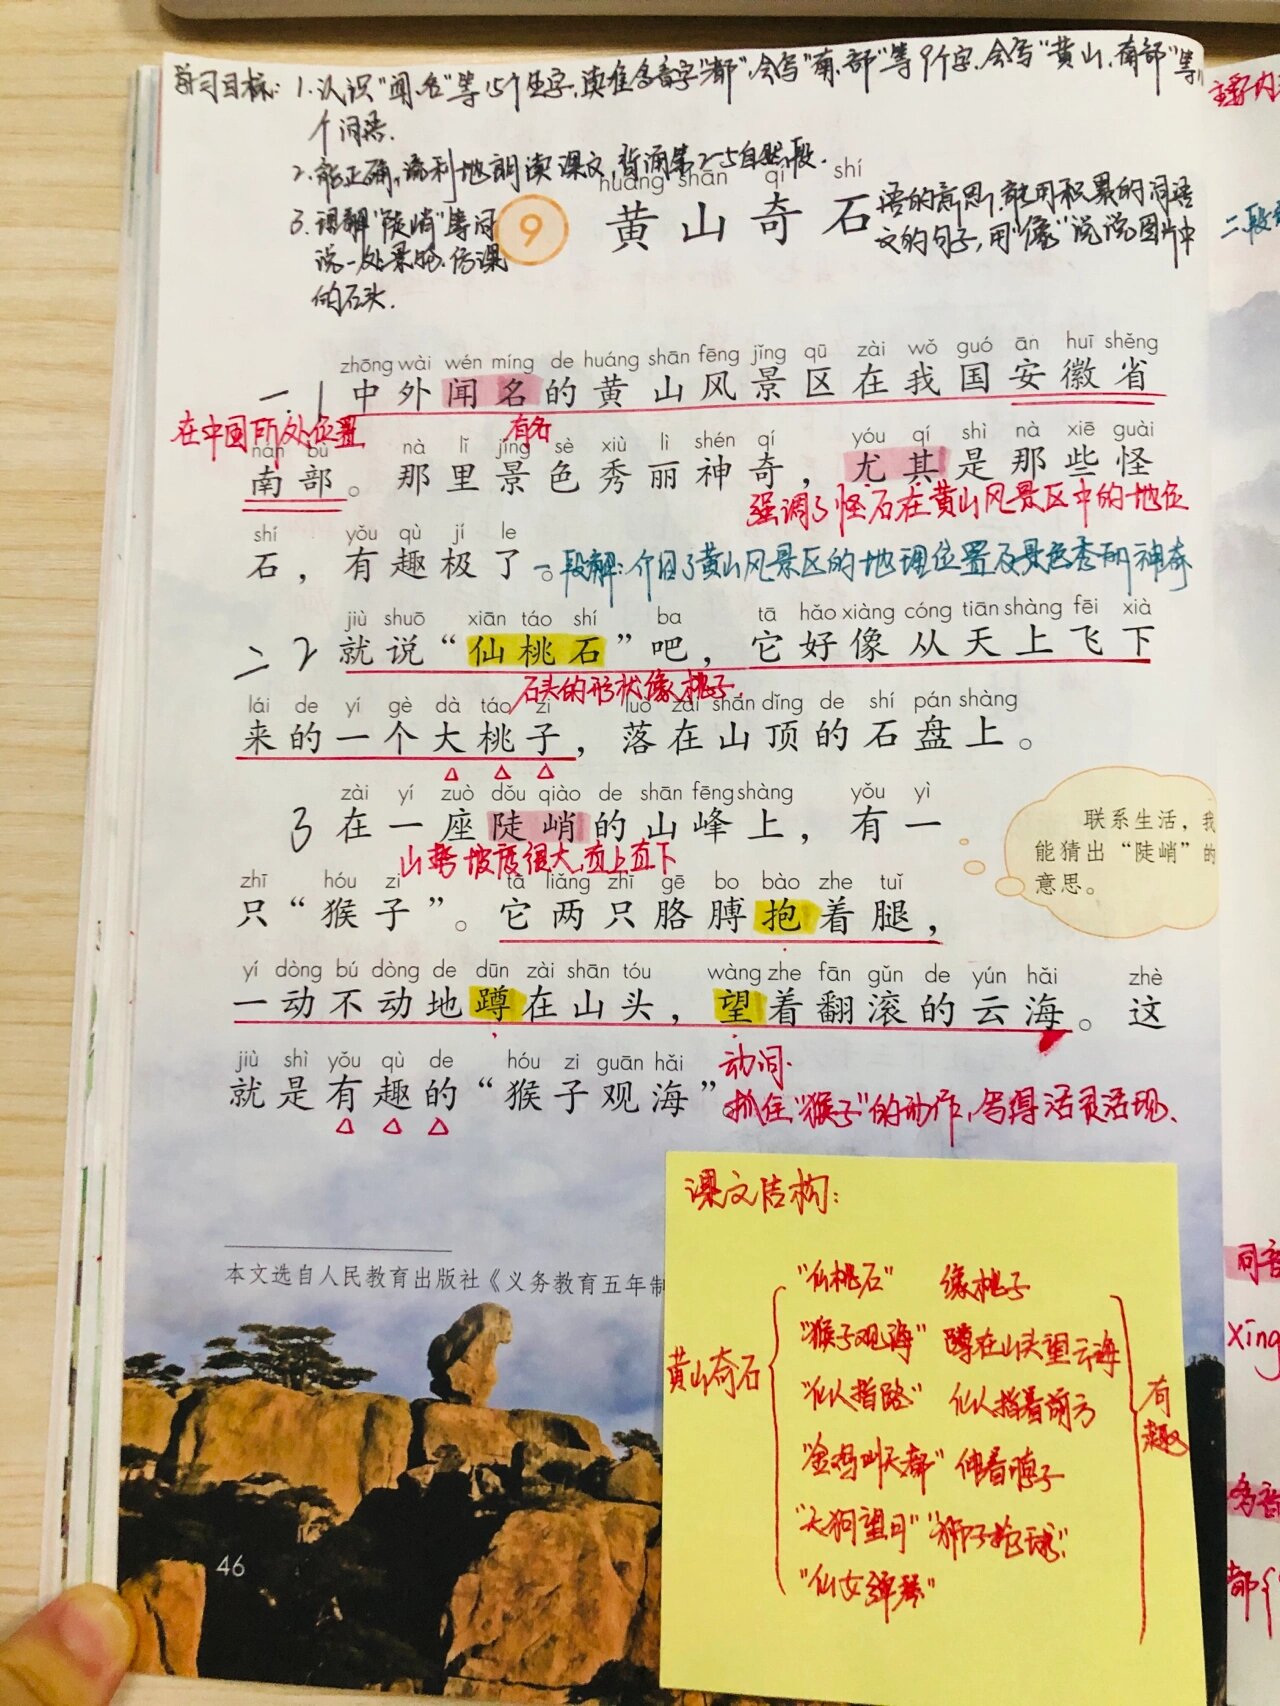 学习目标：1.认识"闻、名"等15个生字，读准多音字"都"，会写"南、部"等9个字，会写"黄山、南部"等
个词语.
2.能正确、流利地朗读课文，背诵第2-5自然段.
3.理解"陡峭"等词
语的意思，能用积累的词语
说一处景物.仿课
文的句子，用"像"说说图片中
的石头.
huáng shān qí shí
9 黄山奇石
zhōng wài wén míng de huáng shān fēng jǐng qū zài wǒ guó ān huī shěng
一.1 中外闻名的黄山风景区在我国安徽省
在中国所处位置
有名
nán bù nà lǐ jǐng sè xiù lì shén qí yóu qí shì nà xiē guài
南部。那里景色秀丽神奇，尤其是那些怪
强调了怪石在黄山风景区中的地位
shí yǒu qù jí le
石，有趣极了。
一段解：介绍了黄山风景区的地理位置及景色秀丽神奇
jiù shuō xiān táo shí ba tā hǎo xiàng cóng tiān shàng fēi xià
二 2 就说“仙桃石”吧，它好像从天上飞下
石头的形状像桃子.
lái de yí gè dà táo zi luò zài shān dǐng de shí pán shàng
来的一个大桃子，落在山顶的石盘上。
zài yí zuò dǒu qiào de shān fēng shàng yǒu yì
3 在一座陡峭的山峰上，有一
山势坡度很大，直上直下
联系生活，我
能猜出“陡峭”的
意思。
zhī hóu zi tā liǎng zhī gē bo bào zhe tuǐ
只“猴子”。它两只胳膊抱着腿，
yí dòng bú dòng de dūn zài shān tóu wàng zhe fān gǔn de yún hǎi zhè
一动不动地蹲在山头，望着翻滚的云海。这
jiù shì yǒu qù de hóu zi guān hǎi
就是有趣的“猴子观海”。
动词.
抓住"猴子"的动作，写得活灵活现.
本文选自人民教育出版社《义务教育五年制
46
课文结构：
黄山奇石
"仙桃石" 像桃子
"猴子观海" 蹲在山头望云海
"仙人指路" 仙人指着前方
"金鸡叫天都" 伸着脖子
"天狗望月" "狮子抢球"
"仙女弹琴"
有趣
主要内
二段
同音
xíng
多音
都